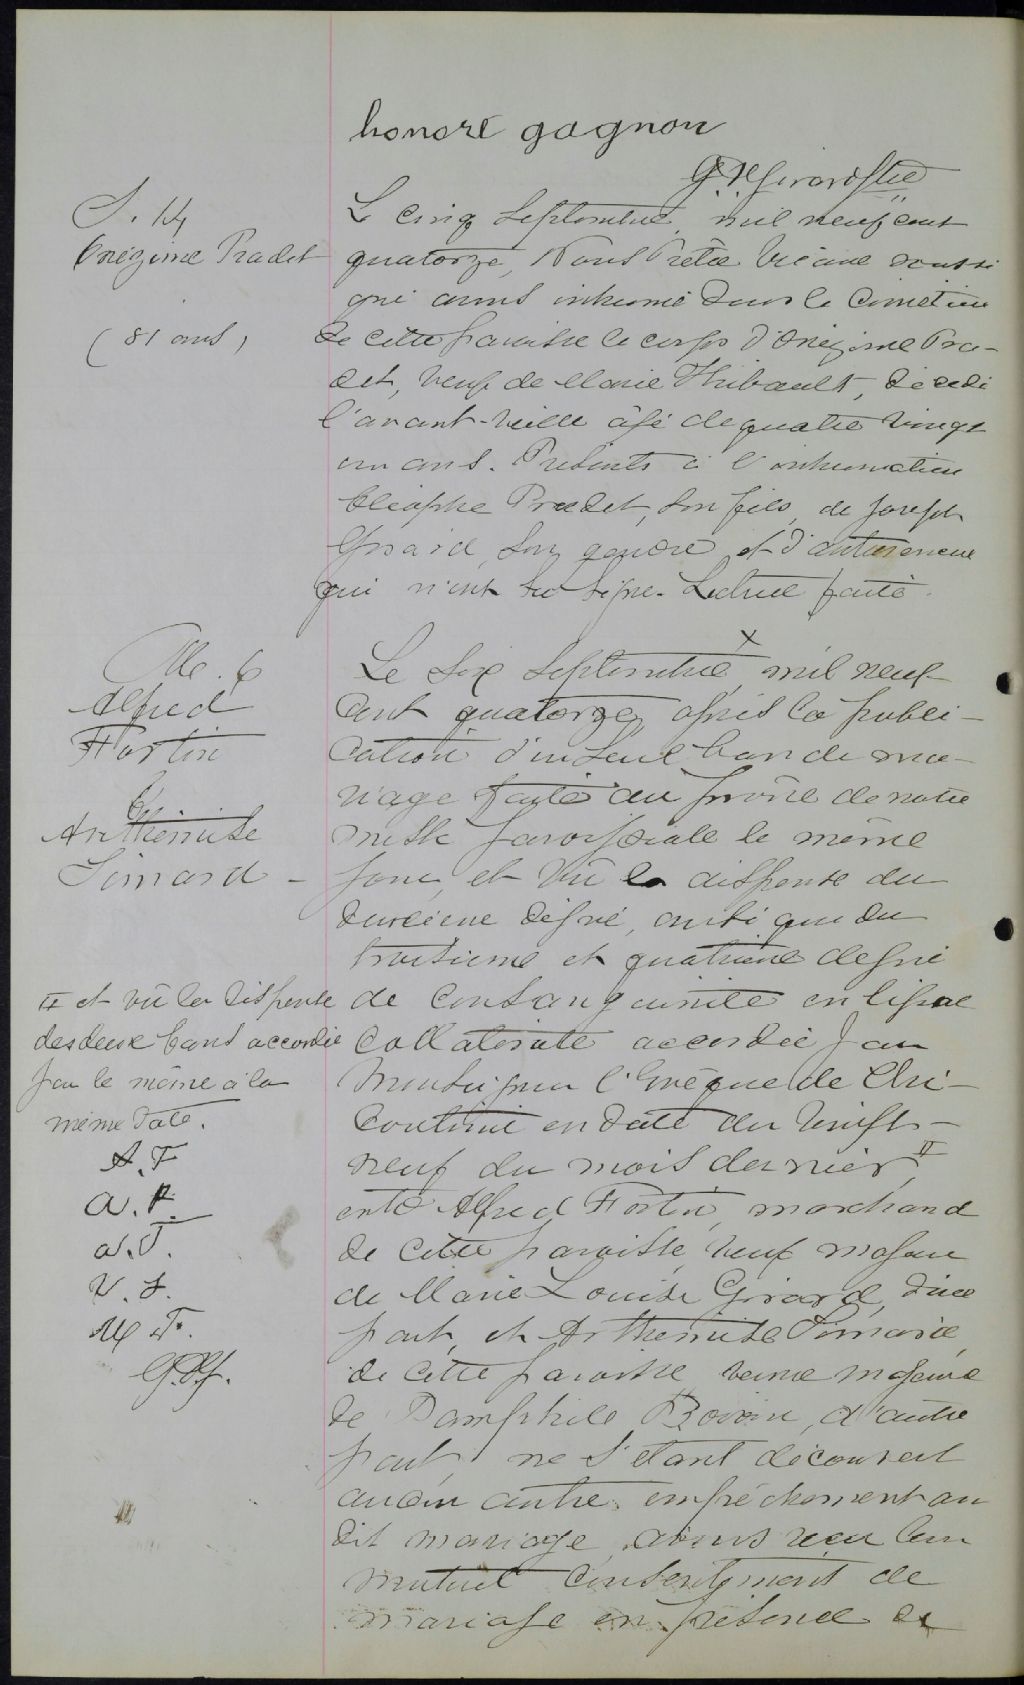 honoré gagnon
S. 14
Onézime Pradet
(81 ans)
Le cinq Septembre mil neuf cent
quatorze, Nous Prêtre Vicaire soussi
gné avons inhumé dans le Cimetière
de cette paroisse le corps d'Onézime Pra-
det, veuf de Marie Thibault, décédé
l'avant-veille âgé de quatre vingt
un ans. Présents à l'inhumation
Cléophe Pradet, son fils, de Joseph
Girard, son gendre et d'autres encore
qui n'ont su signer. Lecture faite.
M. 6
Alfred
Fortin
&
Arthémise
Simard -
Le six Septembre x mil neuf
cent quatorze, après la publi-
cation d'un seul ban de ma-
riage faite au prône de notre
messe paroissiale le même
jour, et vû la dispense du
deuxième dégré, ainsi que du
troisième et quatrième degré
de consanguinité en ligne
collatérale accordée par
Monseigneur l'Evêque de Chi-
coutimi en date du vingt-
neuf du mois dernier, II
entre Alfred Fortin, marchand
de cette paroisse, veuf majeur
de Marie Louise Girard, d'une
part, et Arthémise Simard,
de cette paroisse veuve majeure
de Pamphile Boivin, d'autre
part, ne s'étant découvert
aucun autre empêchement au
dit mariage, avons reçu leur
mutuel consentement de
mariage en présence de
II et vû la dispense
des deux bans accordée
par le même à la
même date.
A. F
A. F.
A. T.
V. S.
M. F.